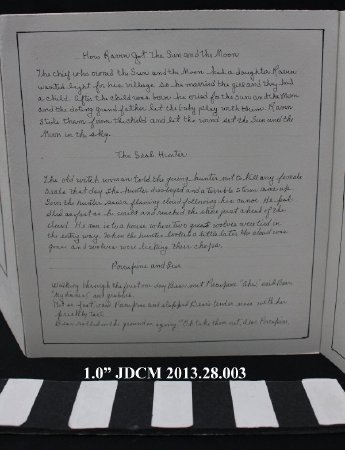 How Raven Got The Sun and the Moon
The chief who owned the Sun and the Moon had a daughter. Raven
wanted light for his village so he married the girl and they had
a child. After the child was born he cried for the Sun and the Moon
and the doting grandfather let the baby play with them. Raven
stole them from the child and let the wind set the Sun and the
Moon in the sky.
The Seal Hunter
The old witch woman told the young hunter not to kill any female
seals that day. The hunter disobeyed and a terrible storm came up.
Soon the hunter saw a flaming cloud following his canoe. He paddled
as fast as he could and reached the shore just ahead of the
cloud. He ran into a house where two great wolves were tied in
the entry way. When the hunter looked a little later the cloud was
gone and wolves were licking their chops.
Porcupine and Deer
Walking through the forest one day Deer met Porcupine. "She" said Deer
"My dinner" and
Not so fast, said Porcupine and slapped Deer's tender nose with her
prickly tail.
Deer rolled on the ground in agony. "Oh take them out, dear Porcupine,
1.0" JDCM 2013.28.003